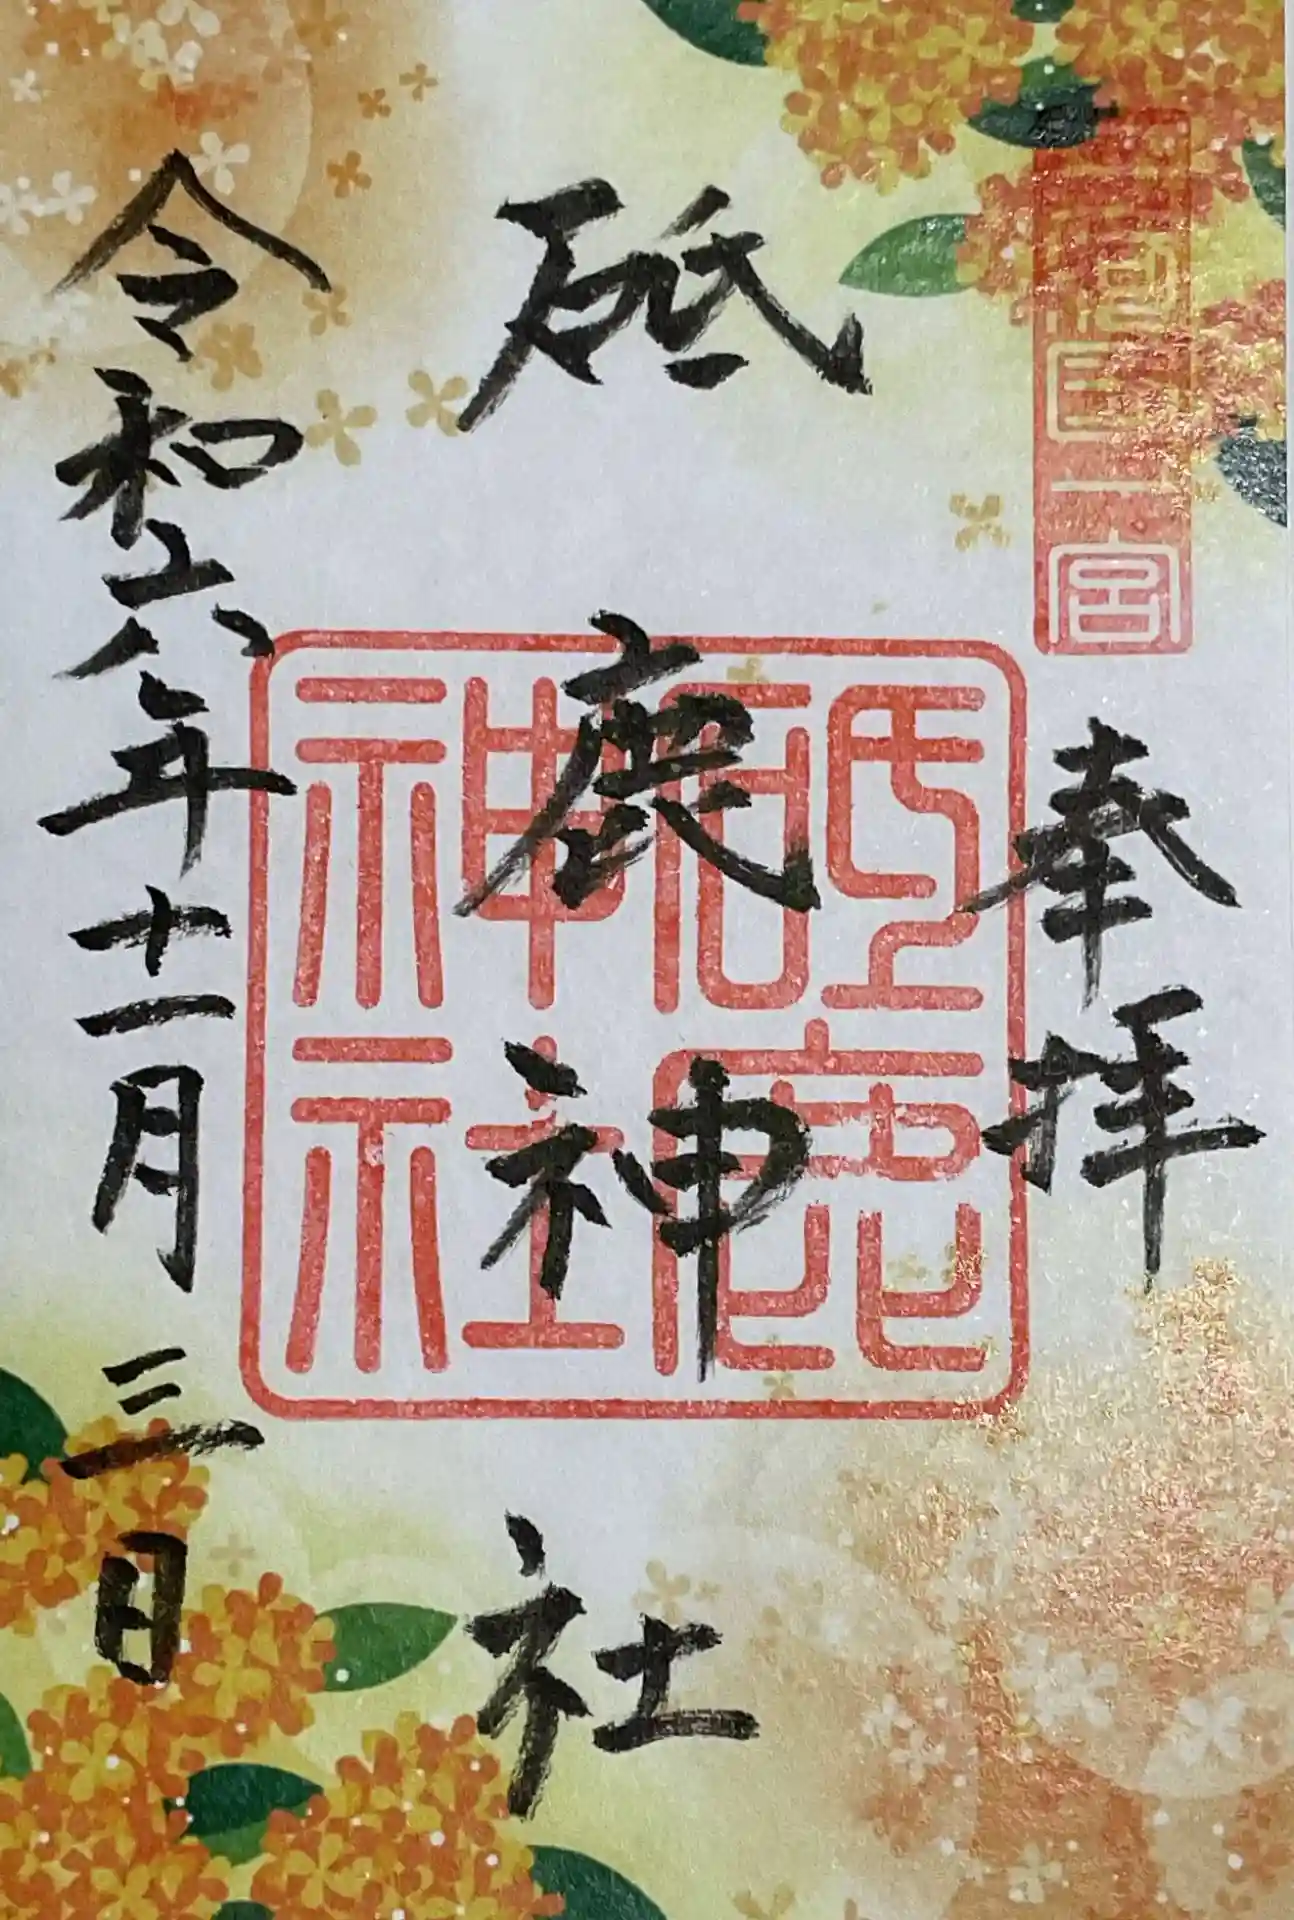 參河國一宮
奉拝
砥鹿神社
砥鹿神社
令和六年十一月三日